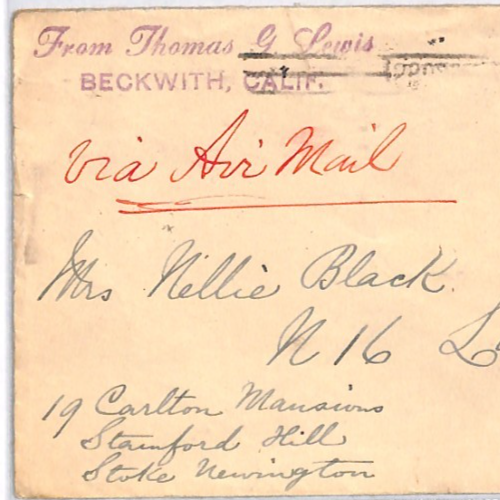 From Thomas G Lewis
BECKWITH, CALIF.
Via Air Mail
Mrs Nellie Black.
N 16
19 Carlton Mansions
Stamford Hill
Stoke Newington